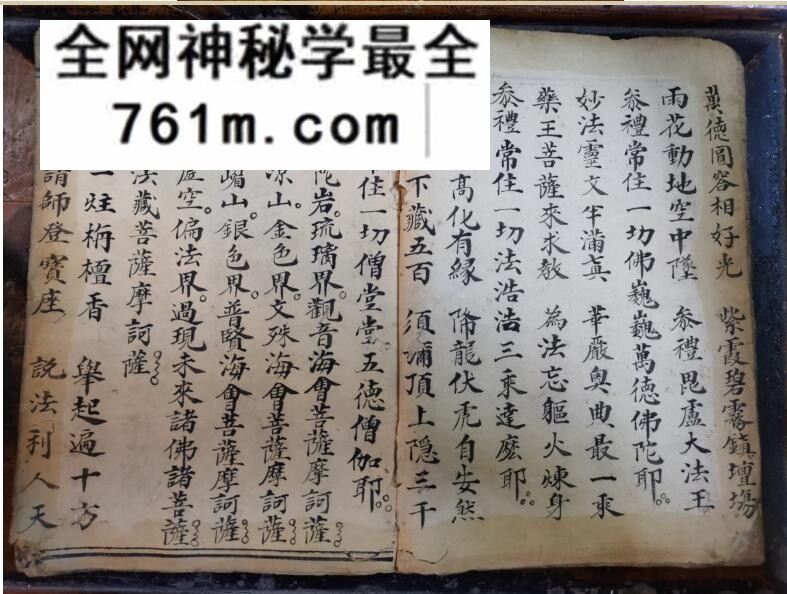 全网神秘学最全
761m.com
萬德圓容相好光 紫霞碧霧鎮壇塲
雨花動地空中墜 叅禮毘盧大法王
叅禮常住一切佛巍巍萬德佛陀耶。
妙法靈文半滿真 華嚴奥典最一乗
藥王菩薩來求教 為法忘軀火煉身
叅禮常住一切法浩浩三乗達麽耶。
高化有緣 降龍伏虎自安然
下藏五百 須彌頂上隐三千
住一切僧堂堂五德僧伽耶。
陀岩。琉璃界。觀音海會菩薩摩訶薩。
凉山。金色界。文殊海會菩薩摩訶薩。
嵋山。銀色界。普賢海會菩薩摩訶薩。
虛空。徧法界。過現未來諸佛諸菩薩。
法藏菩薩摩訶薩。
一炷栴檀香 舉起遍十方
請師登寳座 説法利人天